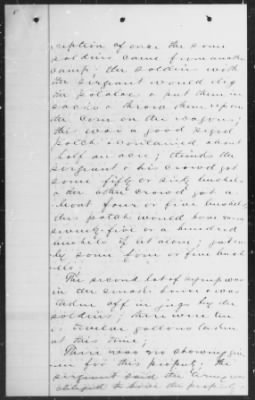 ception of over the same
soldiers came from another
camp; the soldier with
the sergeant would dig
the potatoes & put them in
sacks & throw them upon
the corn on the wagons;
this was a good sized
patch contained about
half an acre; thinks the
sergeant & his crowd got
some fifty or sixty bushels
& the other crowd got a
bout four or five bushels
this patch would have
seventy-five or a hundred
bushels if let alone;
by some four or five bush
els;
The second lot of syrup was
in the smoke house & was
taken off in jugs by the
soldiers; there were ten
or twelve gallons taken
at this time;
There was no
for this property; the
sergeant said the army was
obliged to have the property